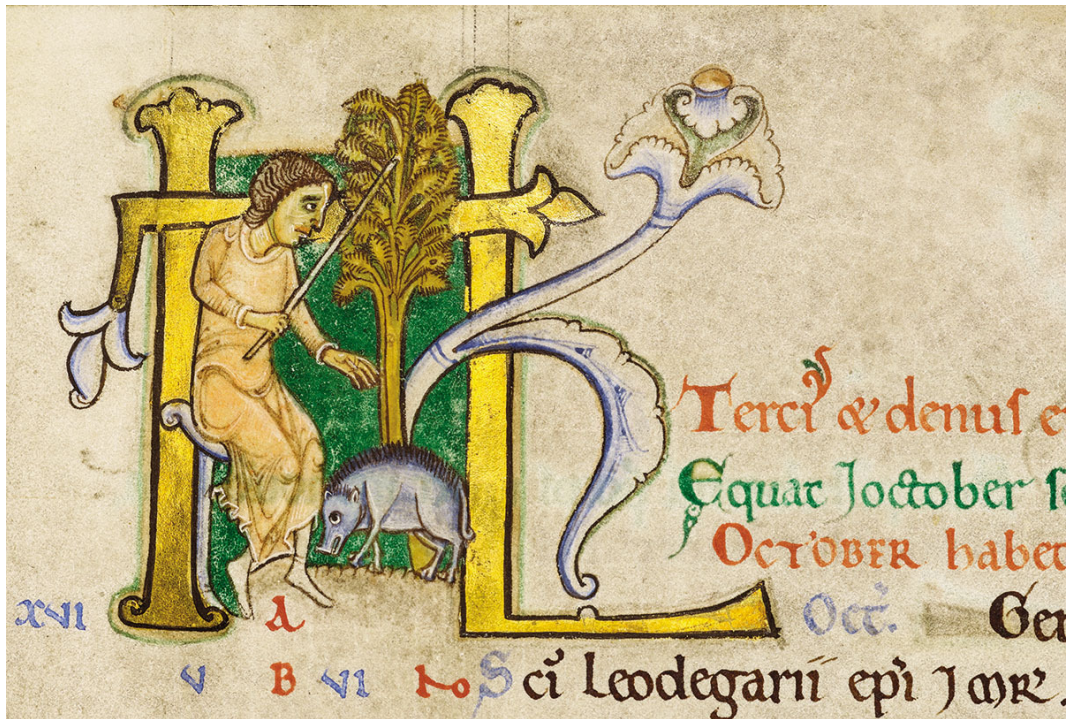 KL
Terci' & denus e
Equat Joctober se
OCTOBER habet
XVI A Oct. Ger
V B VI No Sci Leodegarii epi J mr.